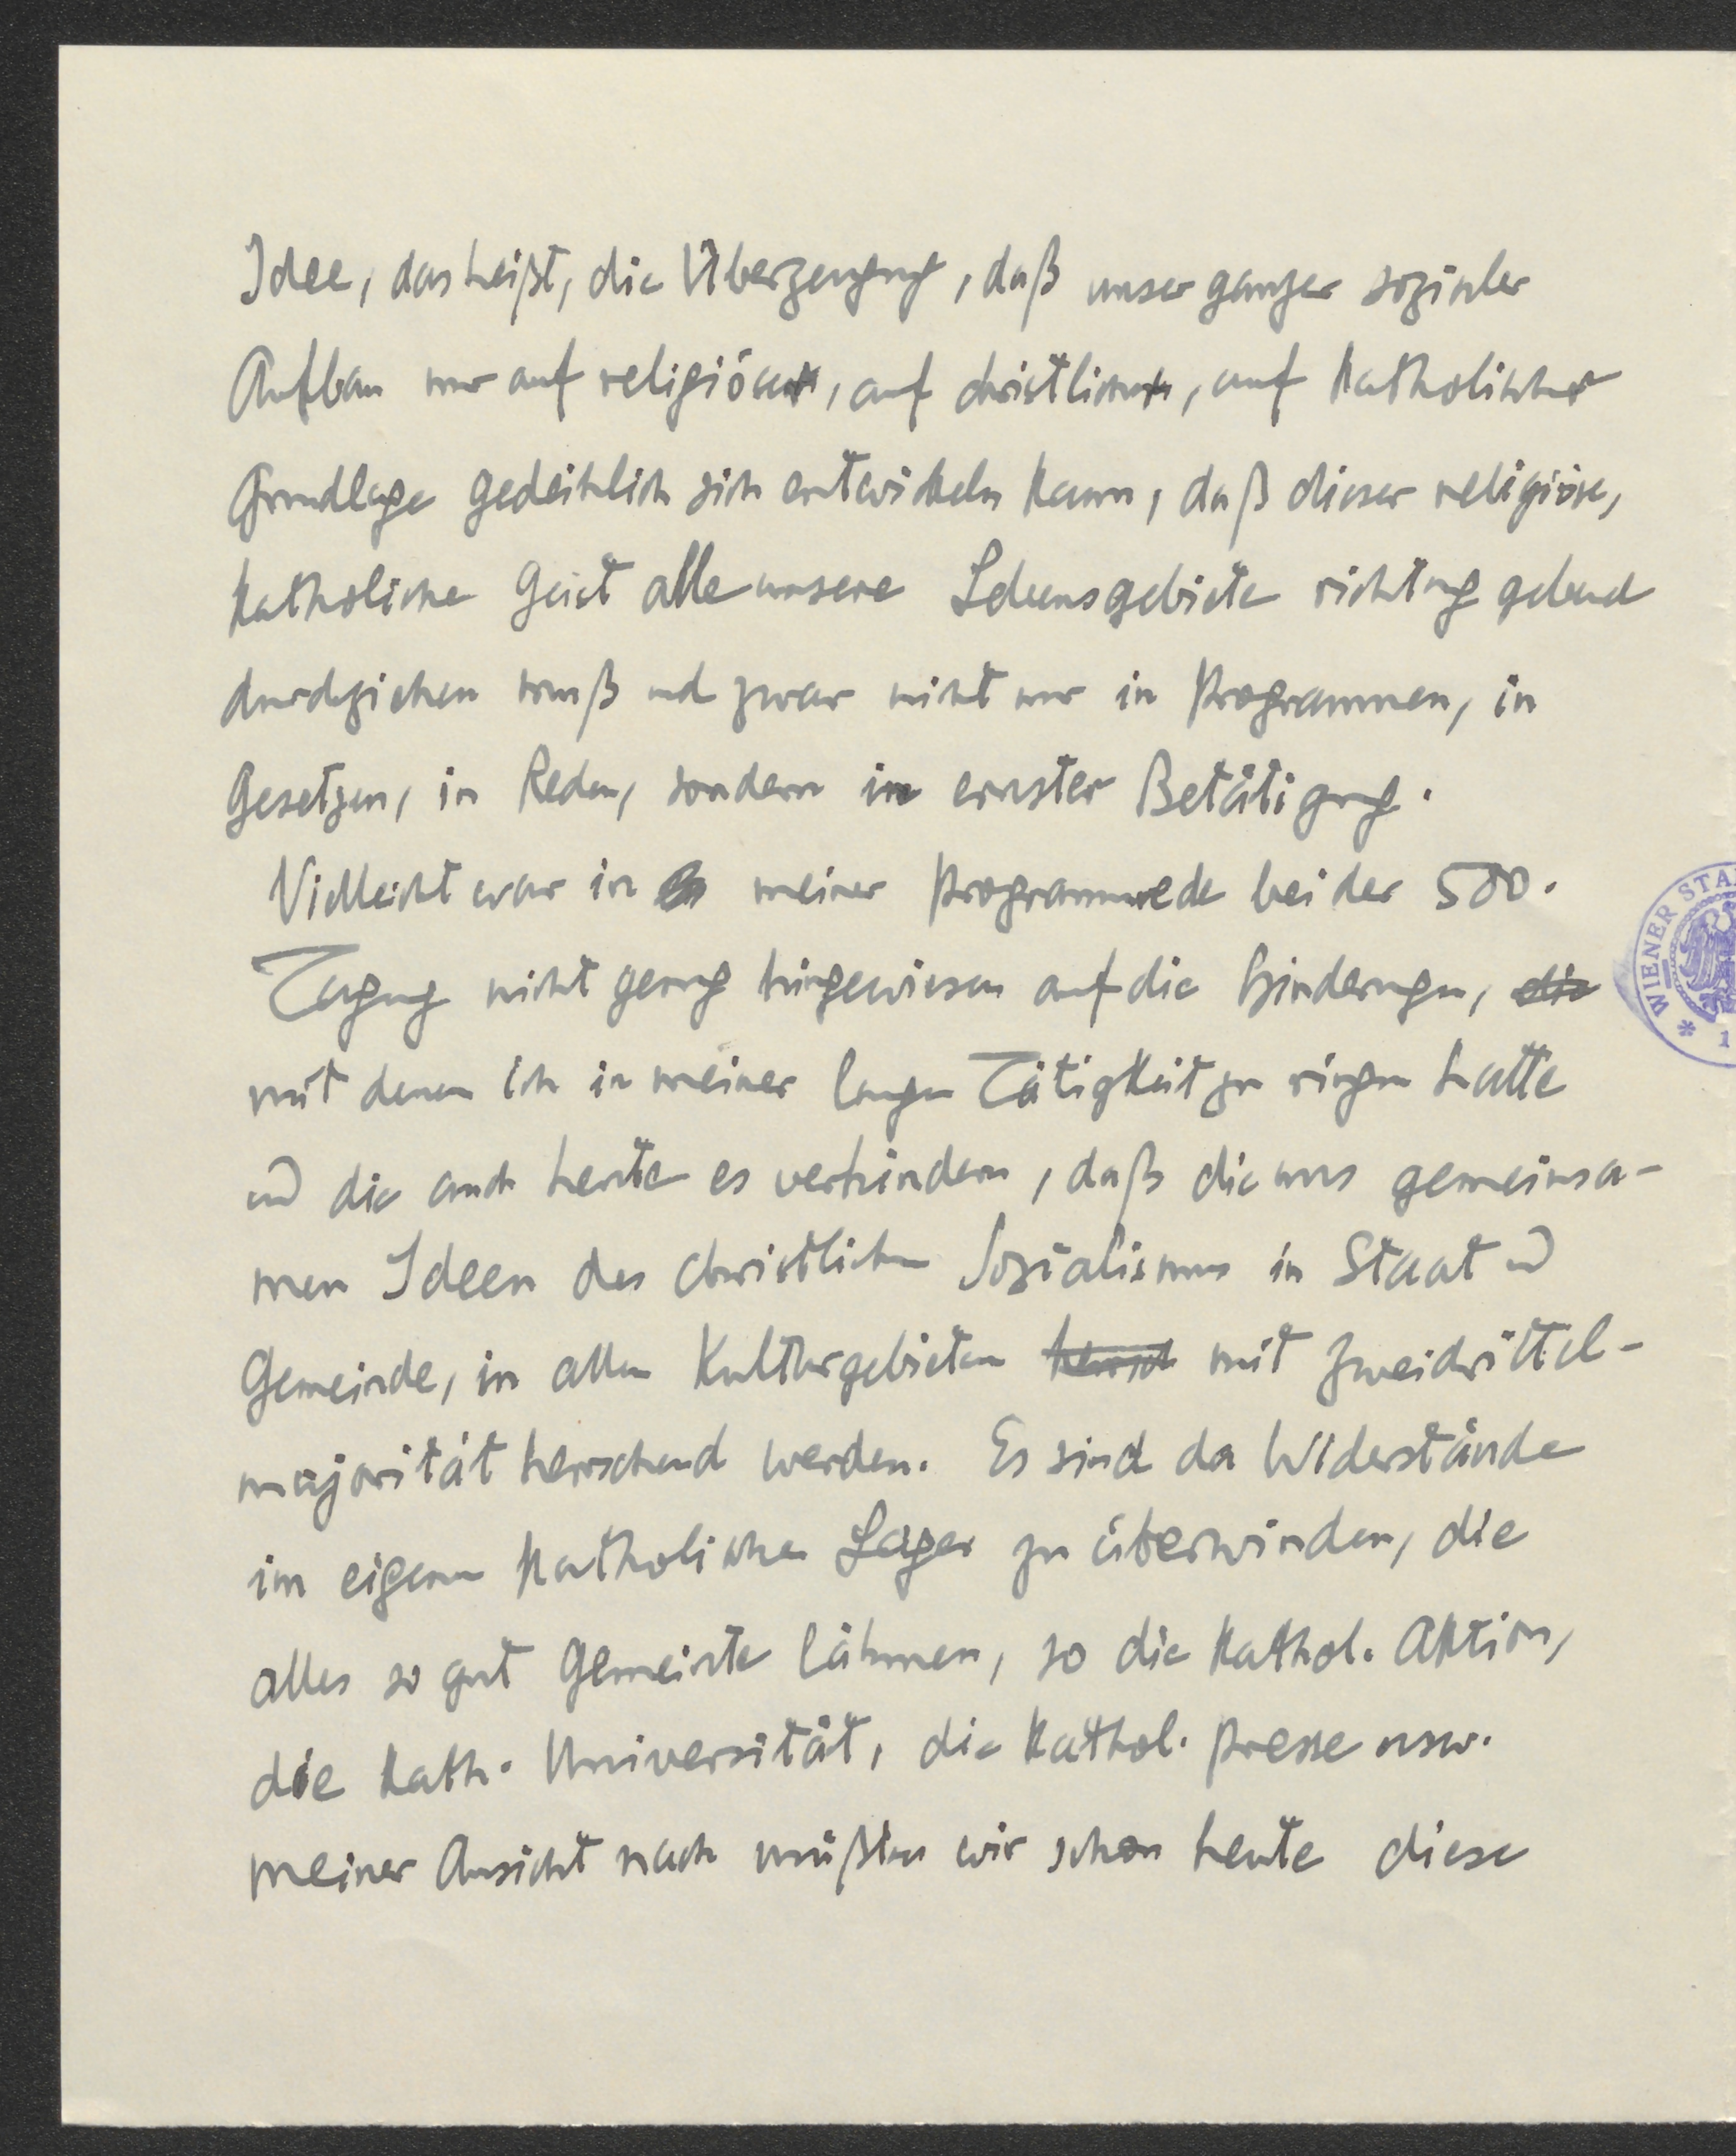 Idee, das heißt, die Überzeugung, daß unser ganzer sozialer
Aufbau nur auf religiöser, auf christlicher, auf katholischer
Grundlage gedeihlich sich entwickeln kann, daß dieser religiöse,
katholische Geist alle unsere Lebensgebiete richtung gebend
durchziehen muß und zwar nicht nur in Programmen, in
Gesetzen, in Reden, sondern in ernster Betätigung.
Vielleicht war in meiner Programmrede bei der 500.
Tagung nicht genug hingewiesen auf die Hinderungen, die
mit denen ich in meiner langen Tätigkeit zu ringen hatte
und die auch heute es verhindern, daß die uns gemeinsa-
men Ideen des christlichen Sozialismus in Staat und
Gemeinde, in allen Kulturgebieten hersch mit Zweidrittel-
majorität herrschend werden. Es sind da Widerstände
im eigenen katholischen Lager zu überwinden, die
alles so gut Gemeinte lähmen, so die kathol. Aktion,
die kath. Universität, die kathol. Presse usw.
Meiner Ansicht nach müßten wir schon heute diese
WIENER STA
* 1